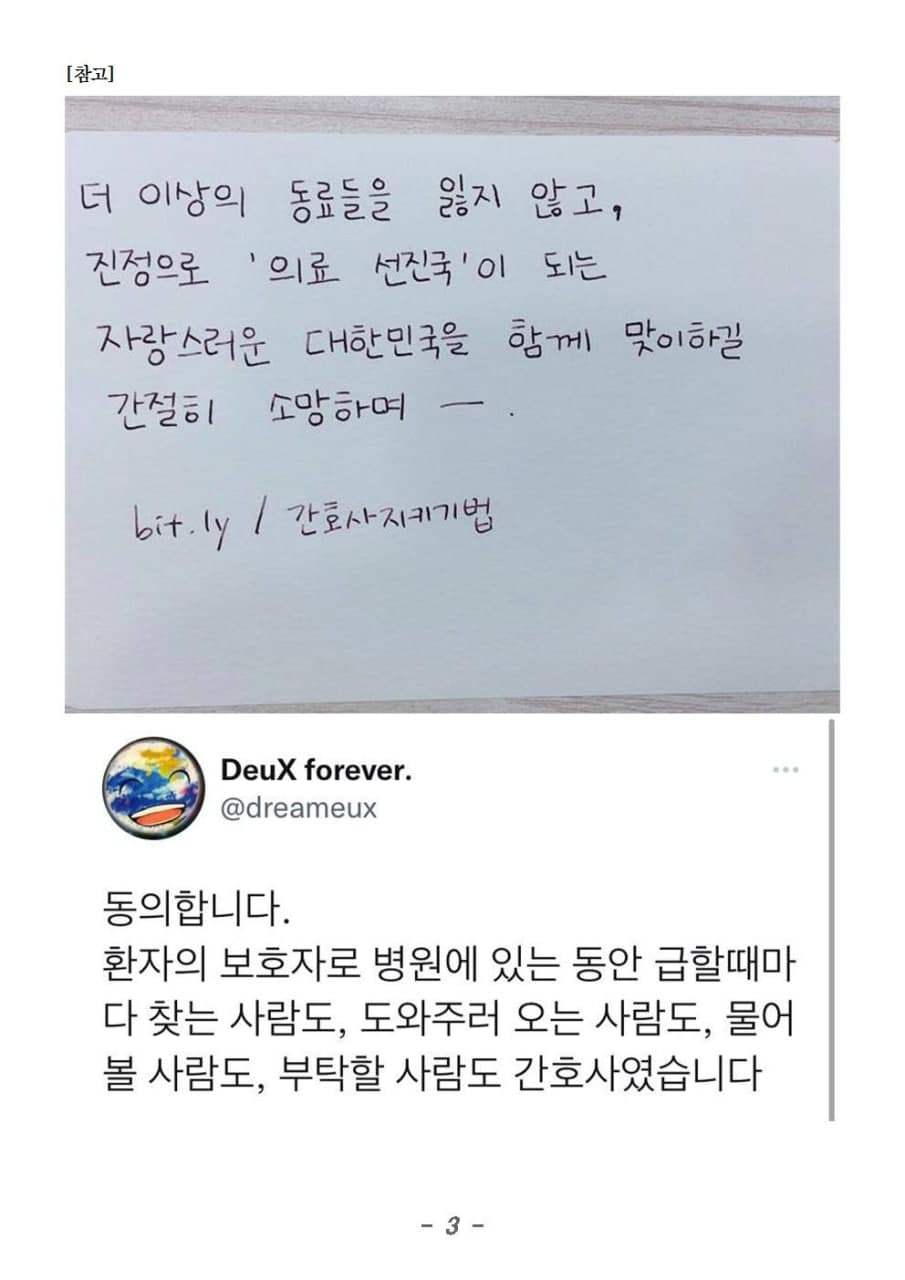 [참고]
더 이상의 동료들을 잃지 않고,
진정으로 '의료 선진국'이 되는
자랑스러운 대한민국을 함께 맞이하길
간절히 소망하며 — .
bit.ly / 간호사지키기법
DeuX forever.
@dreameux
동의합니다.
환자의 보호자로 병원에 있는 동안 급할때마
다 찾는 사람도, 도와주러 오는 사람도, 물어
볼 사람도, 부탁할 사람도 간호사였습니다
- 3 -